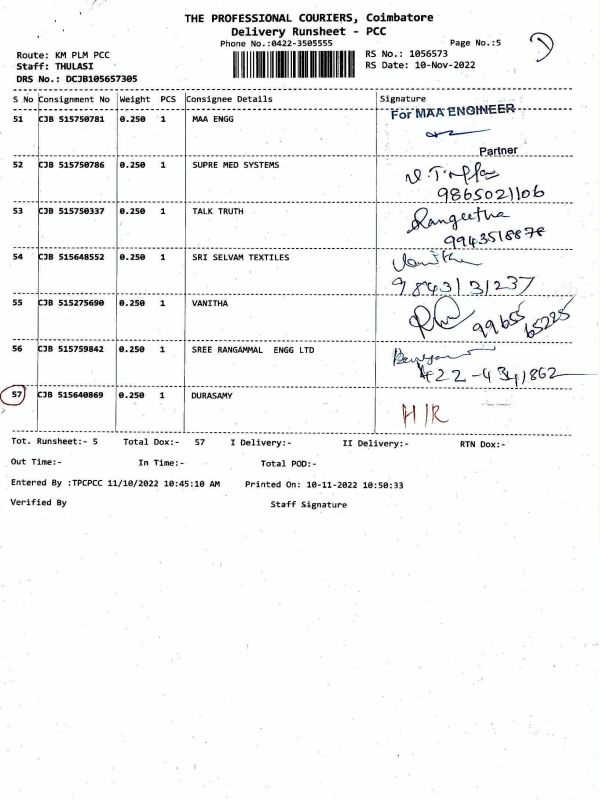 THE PROFESSIONAL COURIERS, Coimbatore
Delivery Runsheet - PCC
Phone No.:0422-3505555 Page No.:5
Route: KM PLM PCC RS No.: 1056573
Staff: THULASI RS Date: 10-Nov-2022
DRS No.: DCJB105657305
S No Consignment No Weight PCS Consignee Details Signature
51 CJB 515750781 0.250 1 MAA ENGG For MAA ENGINEER
Partner
52 CJB 515750786 0.250 1 SUPRE MED SYSTEMS
9865021106
53 CJB 515750337 0.250 1 TALK TRUTH Rangeetha
9943518878
54 CJB 515648552 0.250 1 SRI SELVAM TEXTILES
9843131237
55 CJB 515275690 0.250 1 VANITHA
99655 65225
56 CJB 515759842 0.250 1 SREE RANGAMMAL ENGG LTD
422-4341862
57 CJB 515640869 0.250 1 DURASAMY
H/R
Tot. Runsheet:- 5 Total Dox:- 57 I Delivery:- II Delivery:- RTN Dox:-
Out Time:- In Time:- Total POD:-
Entered By :TPCPCC 11/10/2022 10:45:10 AM Printed On: 10-11-2022 10:50:33
Verified By Staff Signature